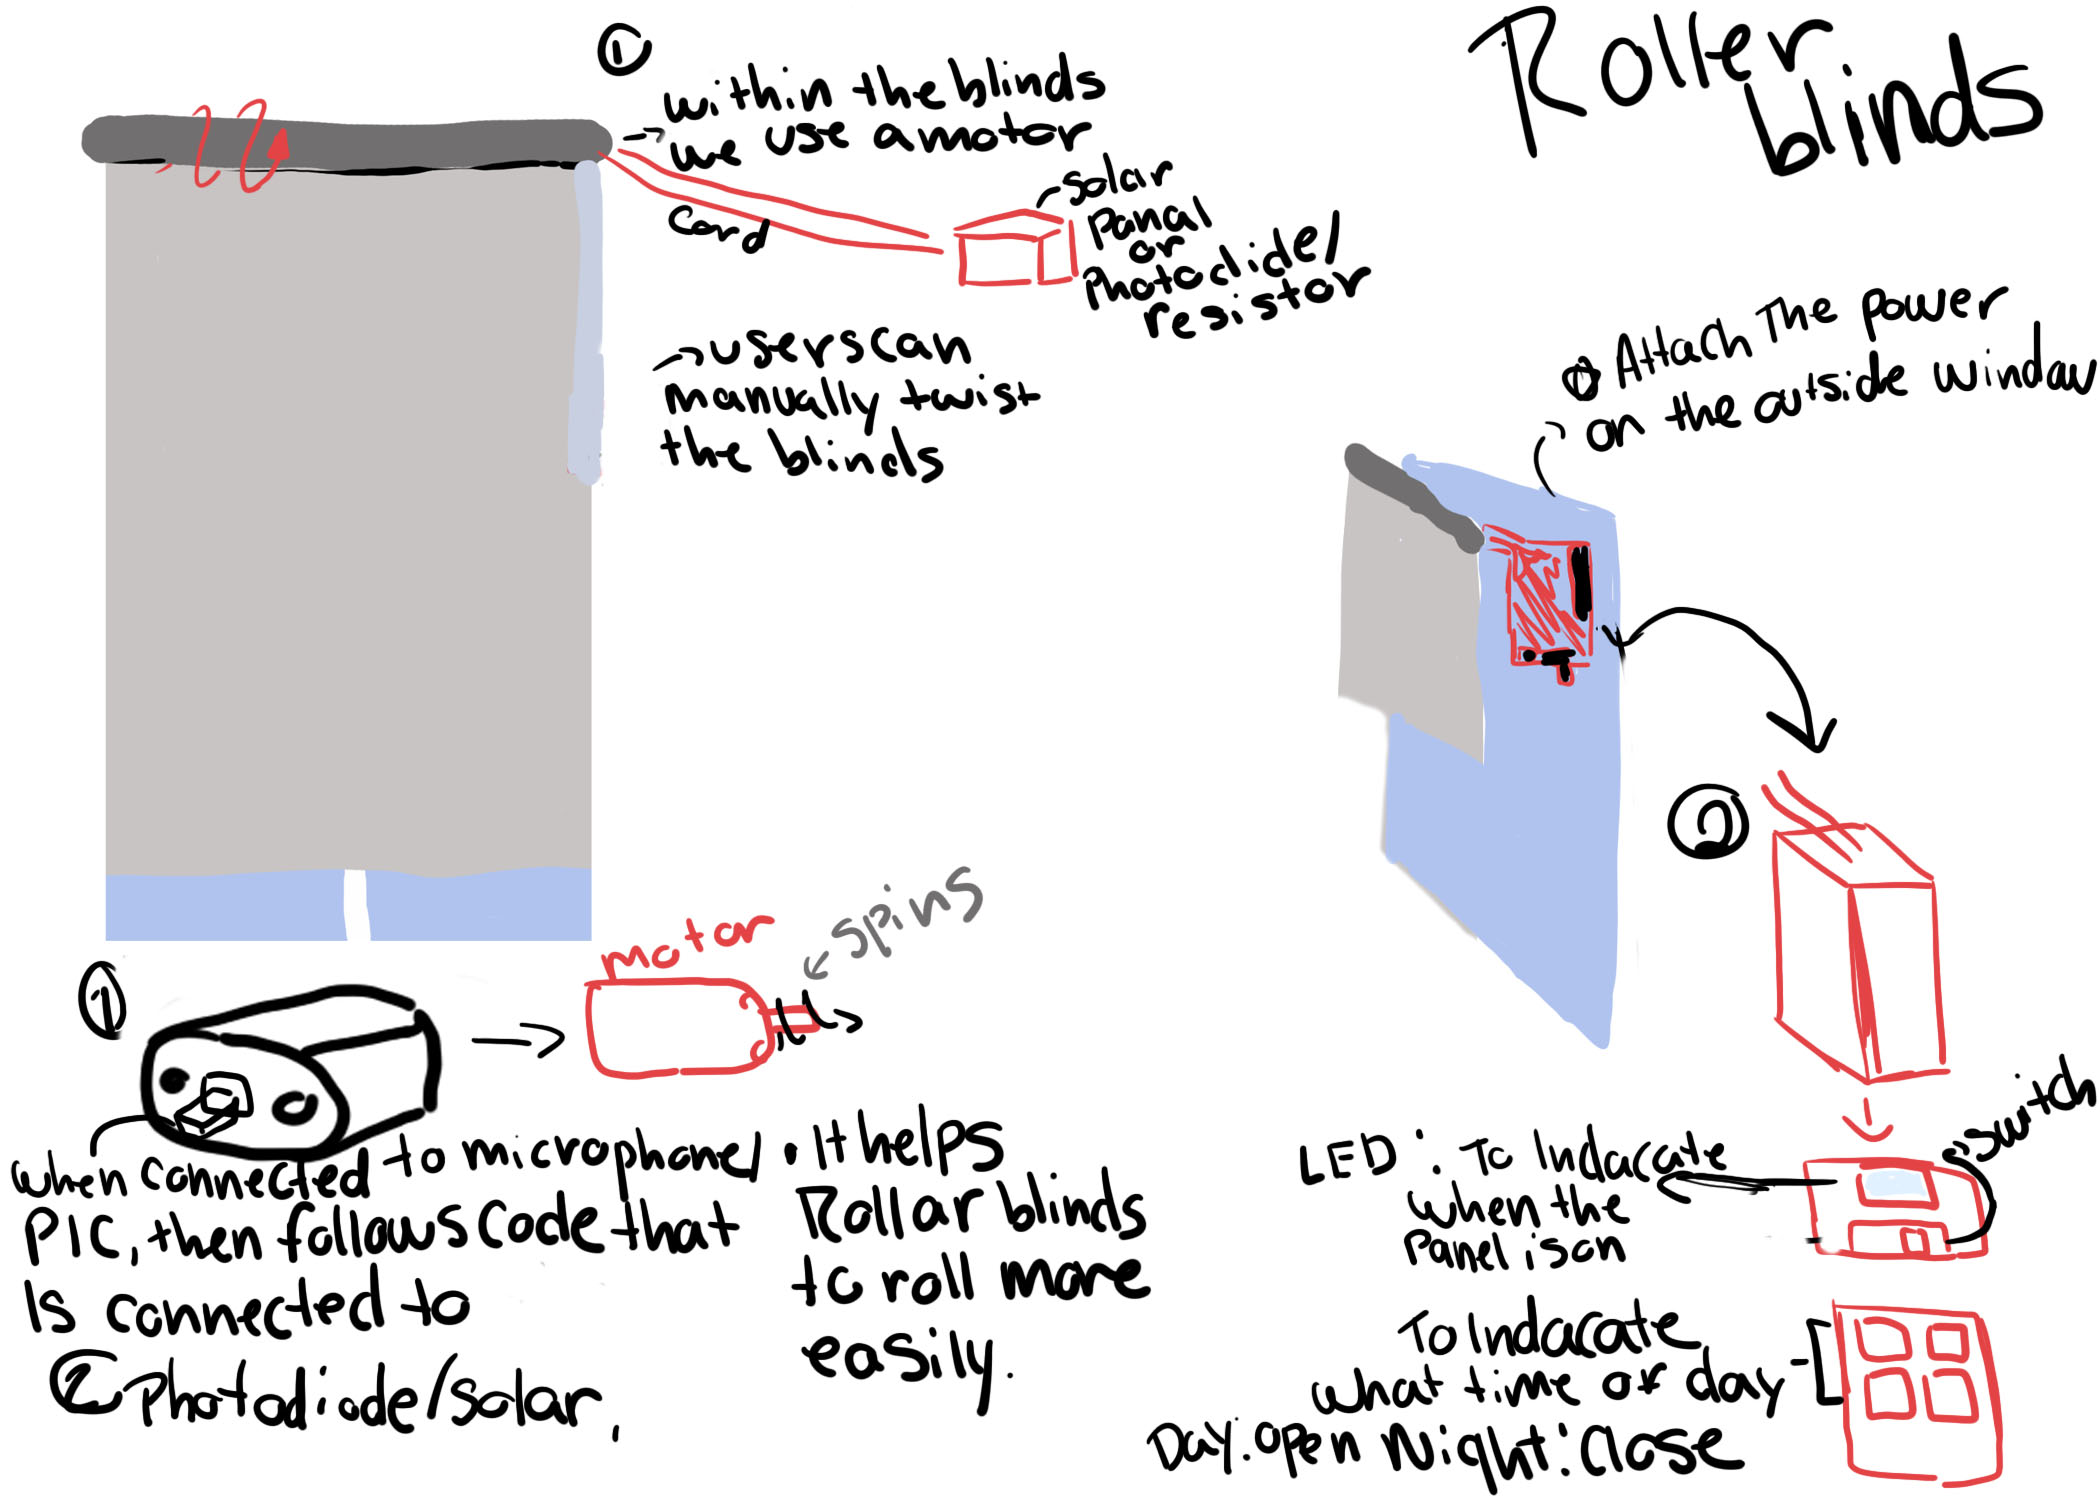 Roller
blinds
①
→ within the blinds
we use a motor
Cord
solar
Panal
or
Photodide/
resistor
→ users can
manually twist
the blinds
① Attach The power
on the outside window
②
①
motor
spins
when connected to microphone/
PIC, then follows code that
Is connected to
② Photodiode/solar,
• It helps
Rollar blinds
to roll more
easily.
switch
LED: To Indacate
when the
Panel is on
To Indacate
what time of day
Day: open Night: Close